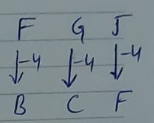 F G J
-4 -4 -4
B C F